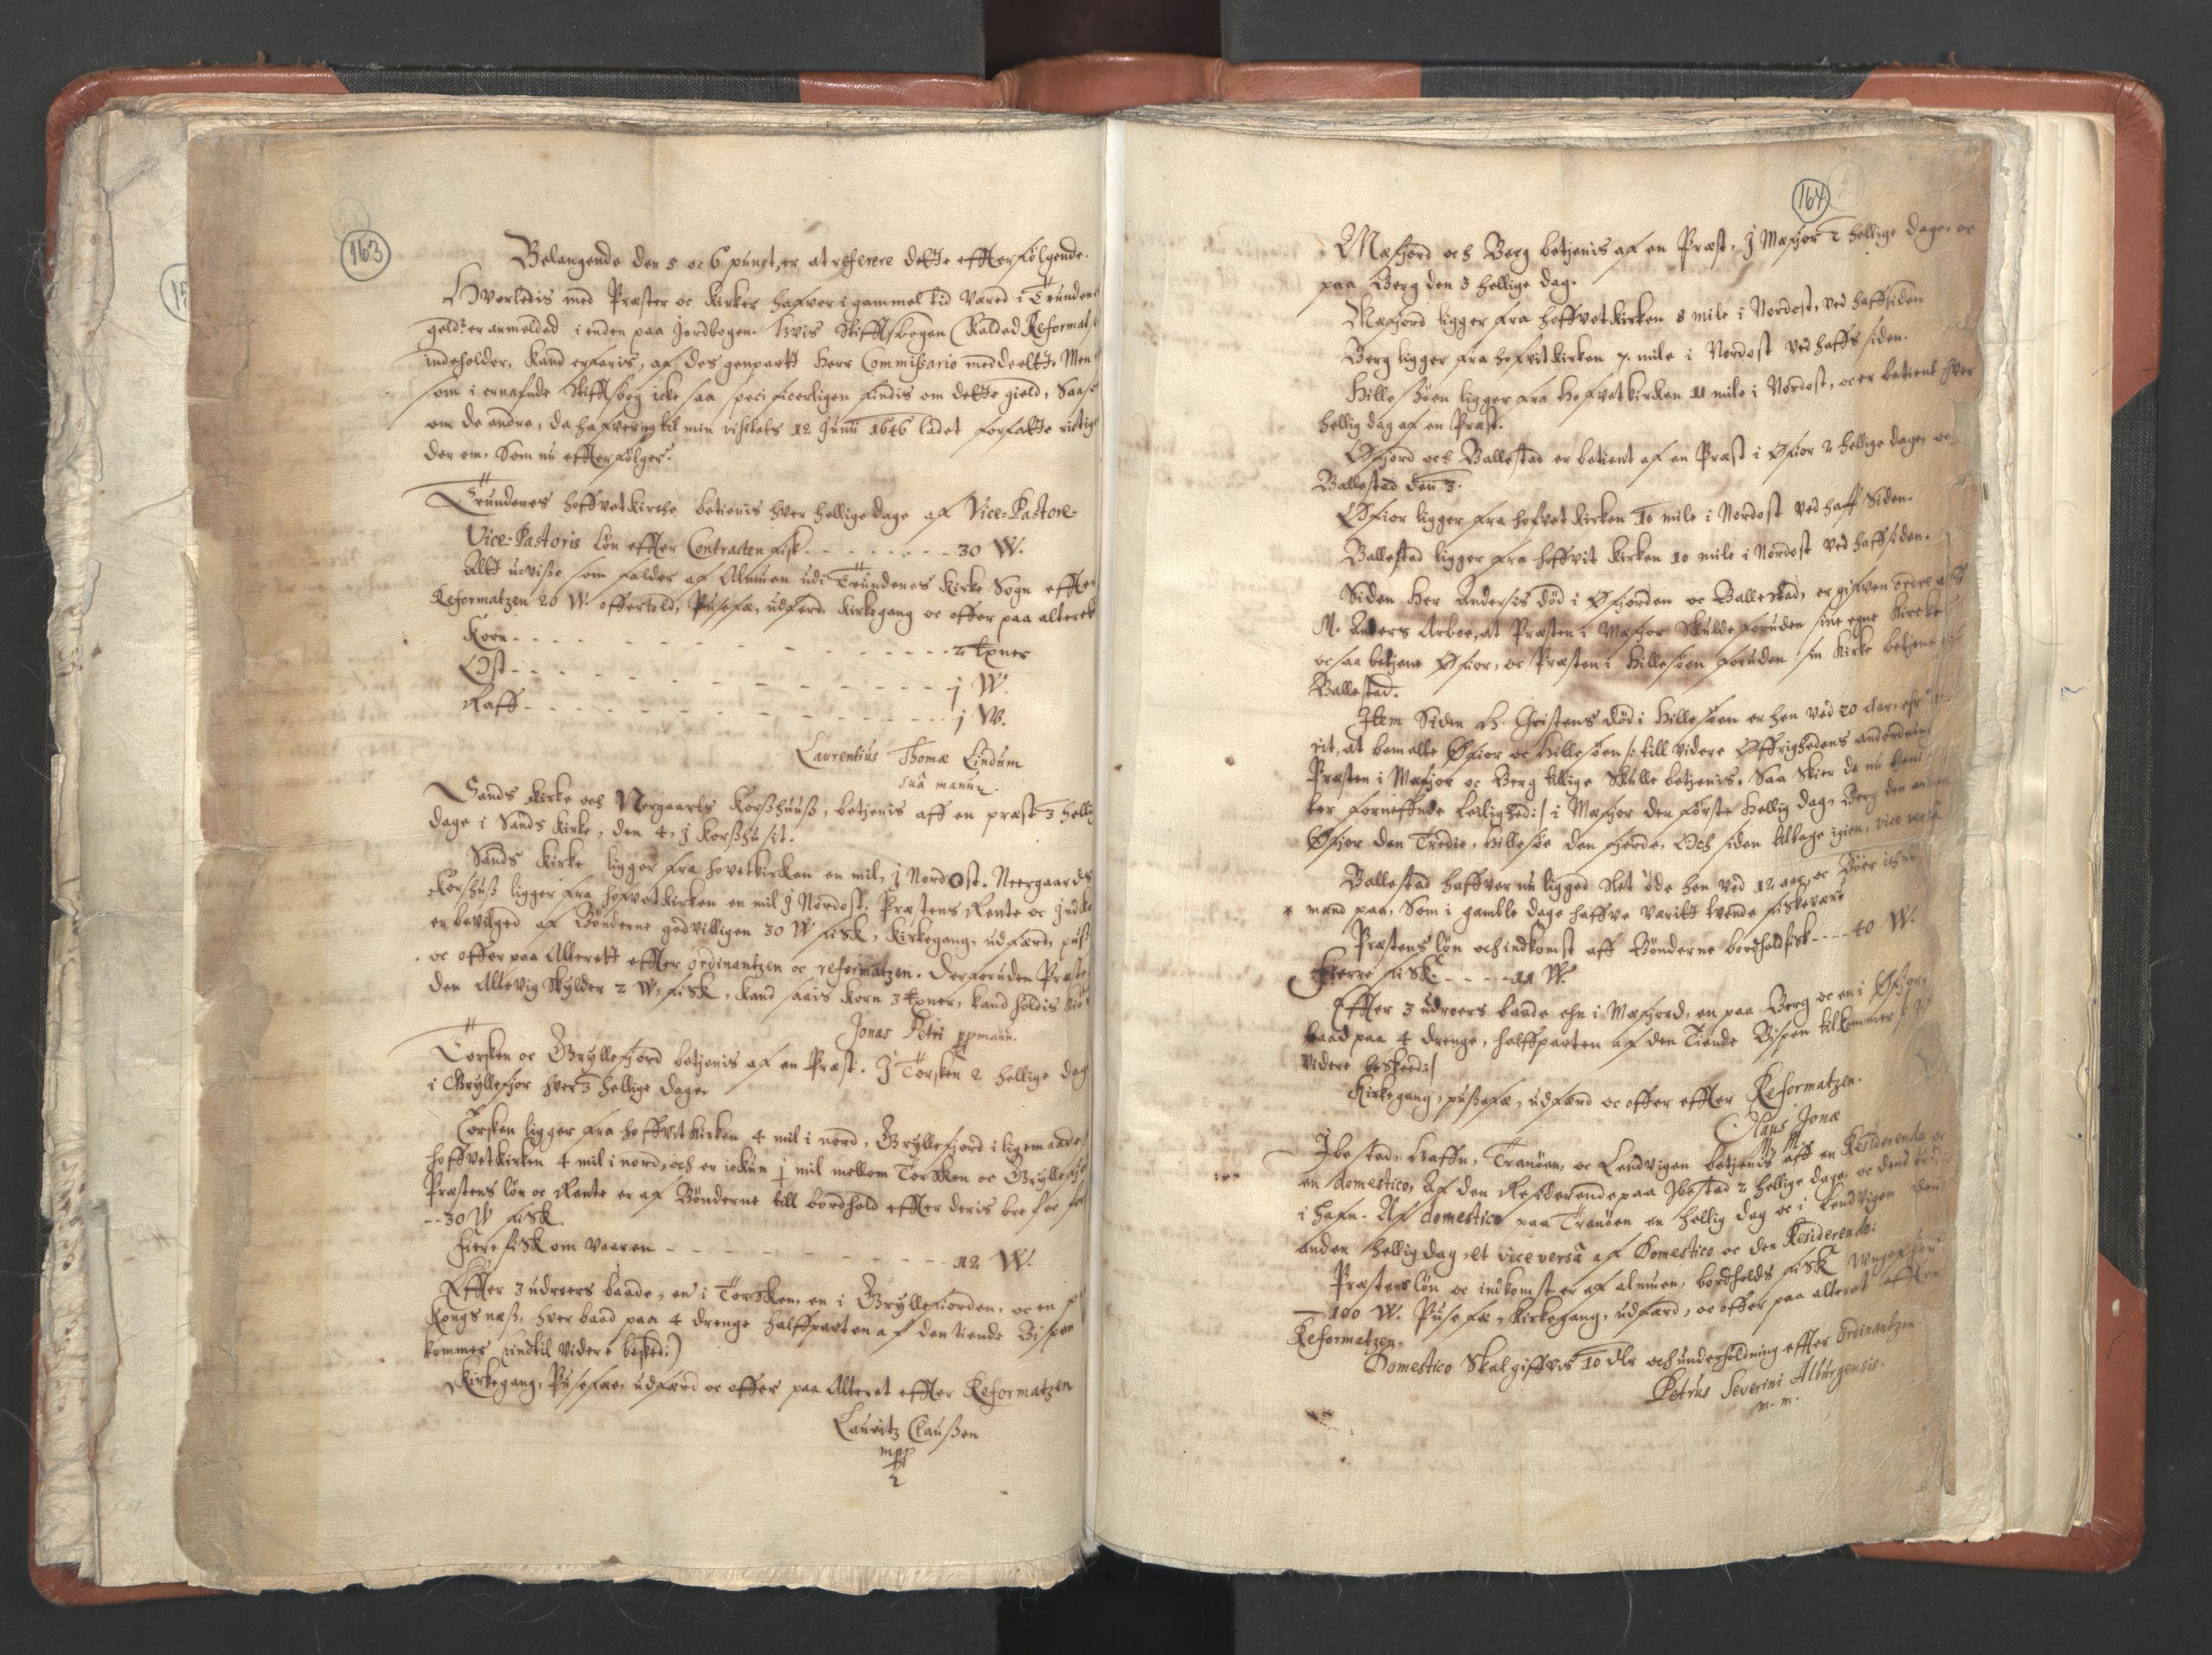 163
Belangende den 5 oc 6 punct, er at referere dette effterfølgende.
Hvorledis med Præster oc Kircker hafver i gammel tid væred i Trunden
geld er anmelded i enden paa Jordbogen. hvis Stifftsbogen (kalded Reformats
indeholder, kand erfaris, af des genpartt Herr Commissario meddeeltt. Men
som i ernafnde Stifftsbog icke saa specificerligen findis om dette gield, Saasom
om de andre, da hafver till min visitats 12 Junii 1646 ladet forfatte rictig
der om, Som nu effterfølger.
Trundenes hoffvetkirche, betienis hver hellige dage af Vice-Pastore
Vice-Pastoris løn effter Contracten fisk - - - - - - - - 30 W.
Altt uvisse som falder af Almuen udi Trundenes Kirke Sogn effter
Reformatzen 20 W. offertold, Pusefæ, udferd, Kirkegang oc offer paa alteret
Korn - - - - - - - - - - - - - - 2 tønner
Ost - - - - - - - - - - - - - j W.
Raff - - - - - - - - - - - - - j W.
Laurentius Thomæ Lindum
suâ manu
Sands Kirke och Nergaards Korsshuuss, betjenis aff en præst 3 hellig
dage i Sands Kirke, den 4, j Korsshusit.
Sands Kirke ligger fra hovetkirken en mil, j Nordost. Neergaards
Korshuss ligger fra hofvetkirken en mil j Nordost. Præstens Rente oc Indk
er bevilged af Bønderne godvilligen 30 W fisk, Kirkegang, udfærd, puss
oc offer paa Alterett effter ordinantzen oc reformatzen. Derforuden Præste
den Allevig skylder 2 W. fisk, kand saais korn 3 tønner, kand holdis Kiø
Jonas Petri ppmann.
Torsken oc Gryllefjord betjenis af en Præst. J Torsken 2 hellige dag
i Gryllefjor hver 3 hellige dage.
Torsken ligger fra hoffvitkirken 4 mil i nord, Gryllefjord i ligemaade
hoffvetkirken 4 mil i nord, och er ickun j mil mellom Torsken oc Gryllefj
Præstens løn oc Rente er af Bønderne till bordhold effter deris bref oc for
--30 W fisk.
fiere fisk om vaaren - - - - - - - - - - - 12 W.
Effter 3 udroers baade, en i Torsken, en i Gryllefiorden, oc en p
Kongsnæss, hver baad paa 4 drenge halffparten af den tiende Bispen
kommer (indtil videre besked:)
Kirkegang, Pusefæ, udfærd oc offer paa Alteret effter Reformatzen
Lauritz Claussen
mpp
164
Mefjord och Berg betjenis af en Præst, J Mefjor 2 hellige dage, oc
paa Berg den 3 hellige dag.
Mefjord ligger fra hoffvetkirken 8 mile i Nordost, ved haffsiden
Berg ligger fra hofvitkirken 7. mile i Nordost ved haffs siden.
Hillesøen ligger fra hofvetkirken 11 mile i Nordost, oc er betient hver
hellig dag af en Præst.
Øfjord och Ballestad er betient af en Præst i Øfior 2 hellige dage, oc
Ballestad den 3.
Øfior ligger fra hofvet kirken 10 mile i Nordost ved haff Siden.
Ballestad ligger fra hoffvit kirken 10 mile i Nordost ved haffsiden.
Siden Her Andersis død i Øfjorden oc Ballestad, er gifven ordre af
M. Anders Arboe, at Præsten i Mefjor skulde foruden sine egne Kircker
oc saa betjene Øfior, oc Præsten i Hillesøen foruden sin Kirke betjene
Ballestad.
Item Siden H. Christens død i Hillesøen er hen ved 20 Aar,
rit, at bem.te Øfior oc Hillesøen /: till videre Øffrighedens anordning
Præsten i Mefjor oc Berg tillige skulle betjenis. Saa skier da nu
ter forneffnde Leilighed:/ i Mefjor den første hellig dag, Berg den anden
Øfior den Tredie, Hillesøe den fierde, Och siden tilbage igien, vice versâ
Ballestad haffver nu ligged slet øde hen ved 12 aar, oc Bøer
mand paa, Som i gamble dage haffve væritt fiskevær
Præstens løn och indkomst aff Bønderne bordholdfisk - - - - 40 W.
Fierre fisk - - - - - 11 W.
Effter 3 udroers baade ehn i Mefjord, en paa Berg oc en i Øfjor,
baad paa 4 drenge, halffparten af den Tiende Bispen tilkommer /:
videre besked:/
Kirkegang, pussefæ, udfærd oc offer effter Reformatzen.
Claus Jonæ
M M.
Ibestad, Haffn, Tranøen, oc Lendvigen betjenis aff en Residerende oc
en domestico, Af den Residerende paa Ibestad 2 hellige dage, oc dend tredie
i hafn. Af domestico paa Tranøen en hellig dag oc i Lendvigen den
anden hellig dag, et vice versâ af Domestico oc den Residerende.
Præstens løn oc indkomst er af almuen, bordholds fisk
--100 W. Pusefæ, Kirkegang, udfærd, oc offer paa alteret effter
Reformatzen.
Domestico skal giffvis 10 dlr och underholdning effter ordinantzen.
Petrus Severini Alburgensis.
m. m.